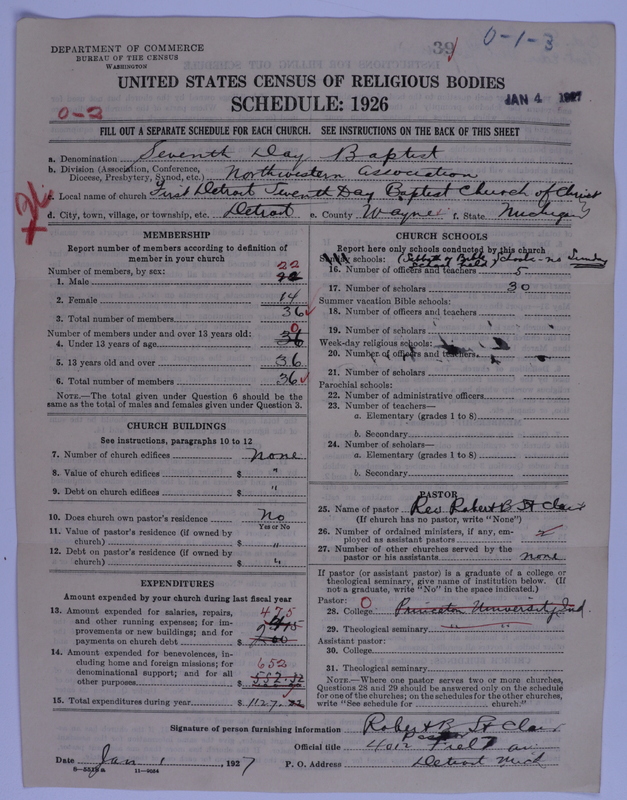 DEPARTMENT OF COMMERCE
BUREAU OF THE CENSUS
WASHINGTON
39
0-1-3
UNITED STATES CENSUS OF RELIGIOUS BODIES
SCHEDULE: 1926
JAN 4 1927
0-2
FILL OUT A SEPARATE SCHEDULE FOR EACH CHURCH. SEE INSTRUCTIONS ON THE BACK OF THIS SHEET
a. Denomination Seventh Day Baptist
b. Division (Association, Conference, Diocese, Presbytery, Synod, etc.) Northwestern Association
c. Local name of church First Detroit Seventh Day Baptist Church of Christ
d. City, town, village, or township, etc. Detroit e. County Wayne f. State Michigan
MEMBERSHIP
Report number of members according to definition of
member in your church
Number of members, by sex:
1. Male 22
2. Female 14
3. Total number of members 36
Number of members under and over 13 years old:
4. Under 13 years of age 0 36
5. 13 years old and over 36
6. Total number of members 36
NOTE.—The total given under Question 6 should be
same as the total of males and females given under Question 3.
CHURCH BUILDINGS
See instructions, paragraphs 10 to 12
7. Number of church edifices None
8. Value of church edifices $ "
9. Debt on church edifices $ "
10. Does church own pastor's residence No
Yes or No
11. Value of pastor's residence (if owned by
church) $ "
12. Debt on pastor's residence (if owned by
church) $ "
EXPENDITURES
Amount expended by your church during last fiscal year
13. Amount expended for salaries, repairs,
and other running expenses; for im-
provements or new buildings; and for
payments on church debt $ 475
14. Amount expended for benevolences, in-
cluding home and foreign missions; for
denominational support; and for all
other purposes $ 652
15. Total expenditures during year $ 1127.
CHURCH SCHOOLS
Report here only schools conducted by this church
schools: (Sabbath or Bible Schools - no Sunday
School held)
16. Number of officers and teachers 5
17. Number of scholars 30
Summer vacation Bible schools:
18. Number of officers and teachers
19. Number of scholars
Week-day religious schools:
20. Number of officers and teachers
21. Number of scholars
Parochial schools:
22. Number of administrative officers
23. Number of teachers—
a. Elementary (grades 1 to 8)
b. Secondary
24. Number of scholars—
a. Elementary (grades 1 to 8)
b. Secondary
PASTOR
25. Name of pastor Rev Robert B. St Clair
(If church has no pastor, write "None")
26. Number of ordained ministers, if any, em-
ployed as assistant pastors
27. Number of other churches served by the
pastor or his assistants none
If pastor (or assistant pastor) is a graduate of a college or
theological seminary, give name of institution below. (If
not a graduate, write "No" in the space indicated.)
Pastor:
28. College 0 Princeton University, Ind.
29. Theological seminary " "
Assistant pastor:
30. College
31. Theological seminary
NOTE.—Where one pastor serves two or more churches,
Questions 28 and 29 should be answered only on the schedule
for one of the churches; on the schedules for the other churches,
write "See schedule for church."
Signature of person furnishing information Robert B. St Clair
Official title Pastor
4012 Field av
Date Jan 1 1927 P. O. Address Detroit Mich
8-5519a 11-9024